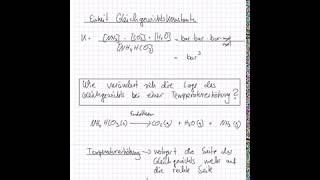 Einheit Gleichgewichtskonstante
K = [NH3] · [CO2] · [H2O] = bar · bar · bar
[NH4HCO3]
= bar³
Wie verändert sich die Lage des
Gleichgewichts bei einer Temperaturerhöhung?
Endotherm
NH4HCO3(s) → CO2(g) + H2O(g) + NH3(g)
Temperaturerhöhung → die Seite des
Gleichgewichts mehr auf
die rechte Seite